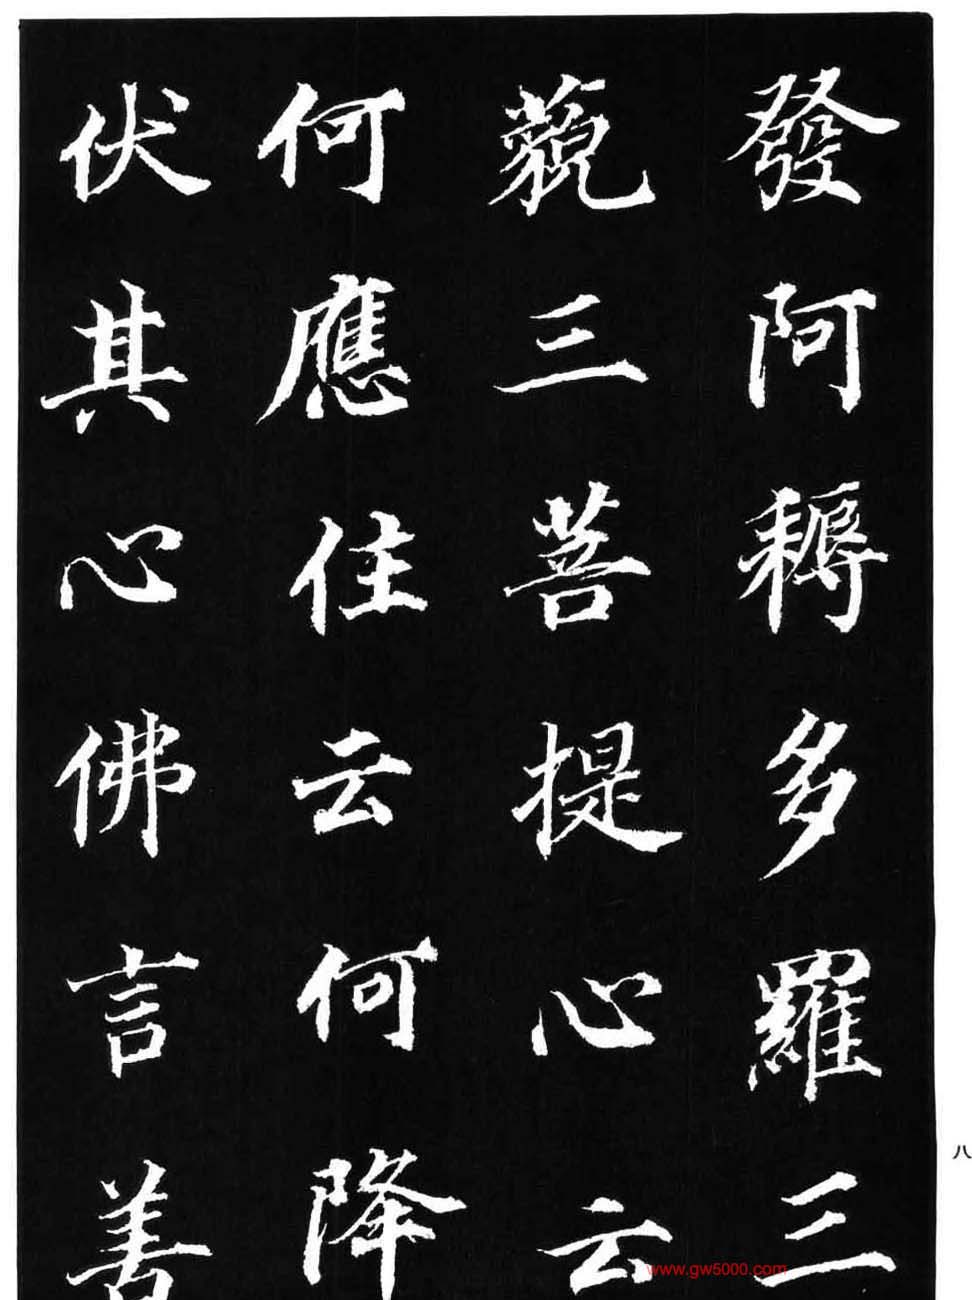 發阿耨多羅三
藐三菩提心云
何應住云何降
伏其心佛言善
八
www.gw5000.com